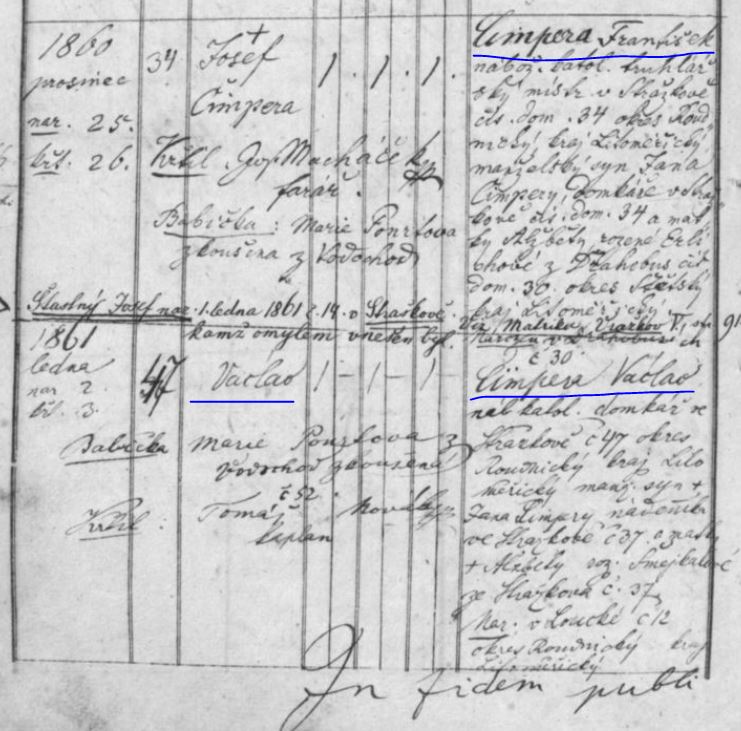 1860
prosinec
nar. 25.
křt. 26.
34
Josef
Čimpera
1 . 1 . 1 .
Křtil Jos. Macháček
farář.
Babička: Marie Ponrtova
zkoušena z Vodochod
Čimpera František
nábož. katol. truhlář
ský mistr v Stražkově
čís. dom. 34 okres Roud
nický, kraj Litoměřický,
manželský syn Jana
Čimpery, domkáře v Straž
kově čís. dom. 34 a mat
ky Alžběty, rozené Erli
chové z Drahobus čís
dom. 30. okres Štětský
kraj Litoměřický.
Šťastný Josef nar. 1. ledna 1861 č. 14. v Straškově.
kamž omylem vnešen byl.
Viz Matriku Vražkov V, str. 91
č 30
1861
ledna
nar 2.
křt. 3.
47
Václav
1 – 1 – 1
Babička Marie Ponrtova z
Vodochod zkoušená
č 52.
Křtil: Tomáš Novák
kaplan
Čimpera Václav
náb katol. domkář ve
Stražkově č 47 okres
Roudnický kraj Lito
měřický manž. syn +
Jana Čimpery nádeníka
ve Stražkově č 37 a matky
+ Alžběty roz. Smejkalové
ze Stražkova č. 37
Nar. v Loucké č 12
okres Roudnický kraj
Litoměřický
In fidem publi